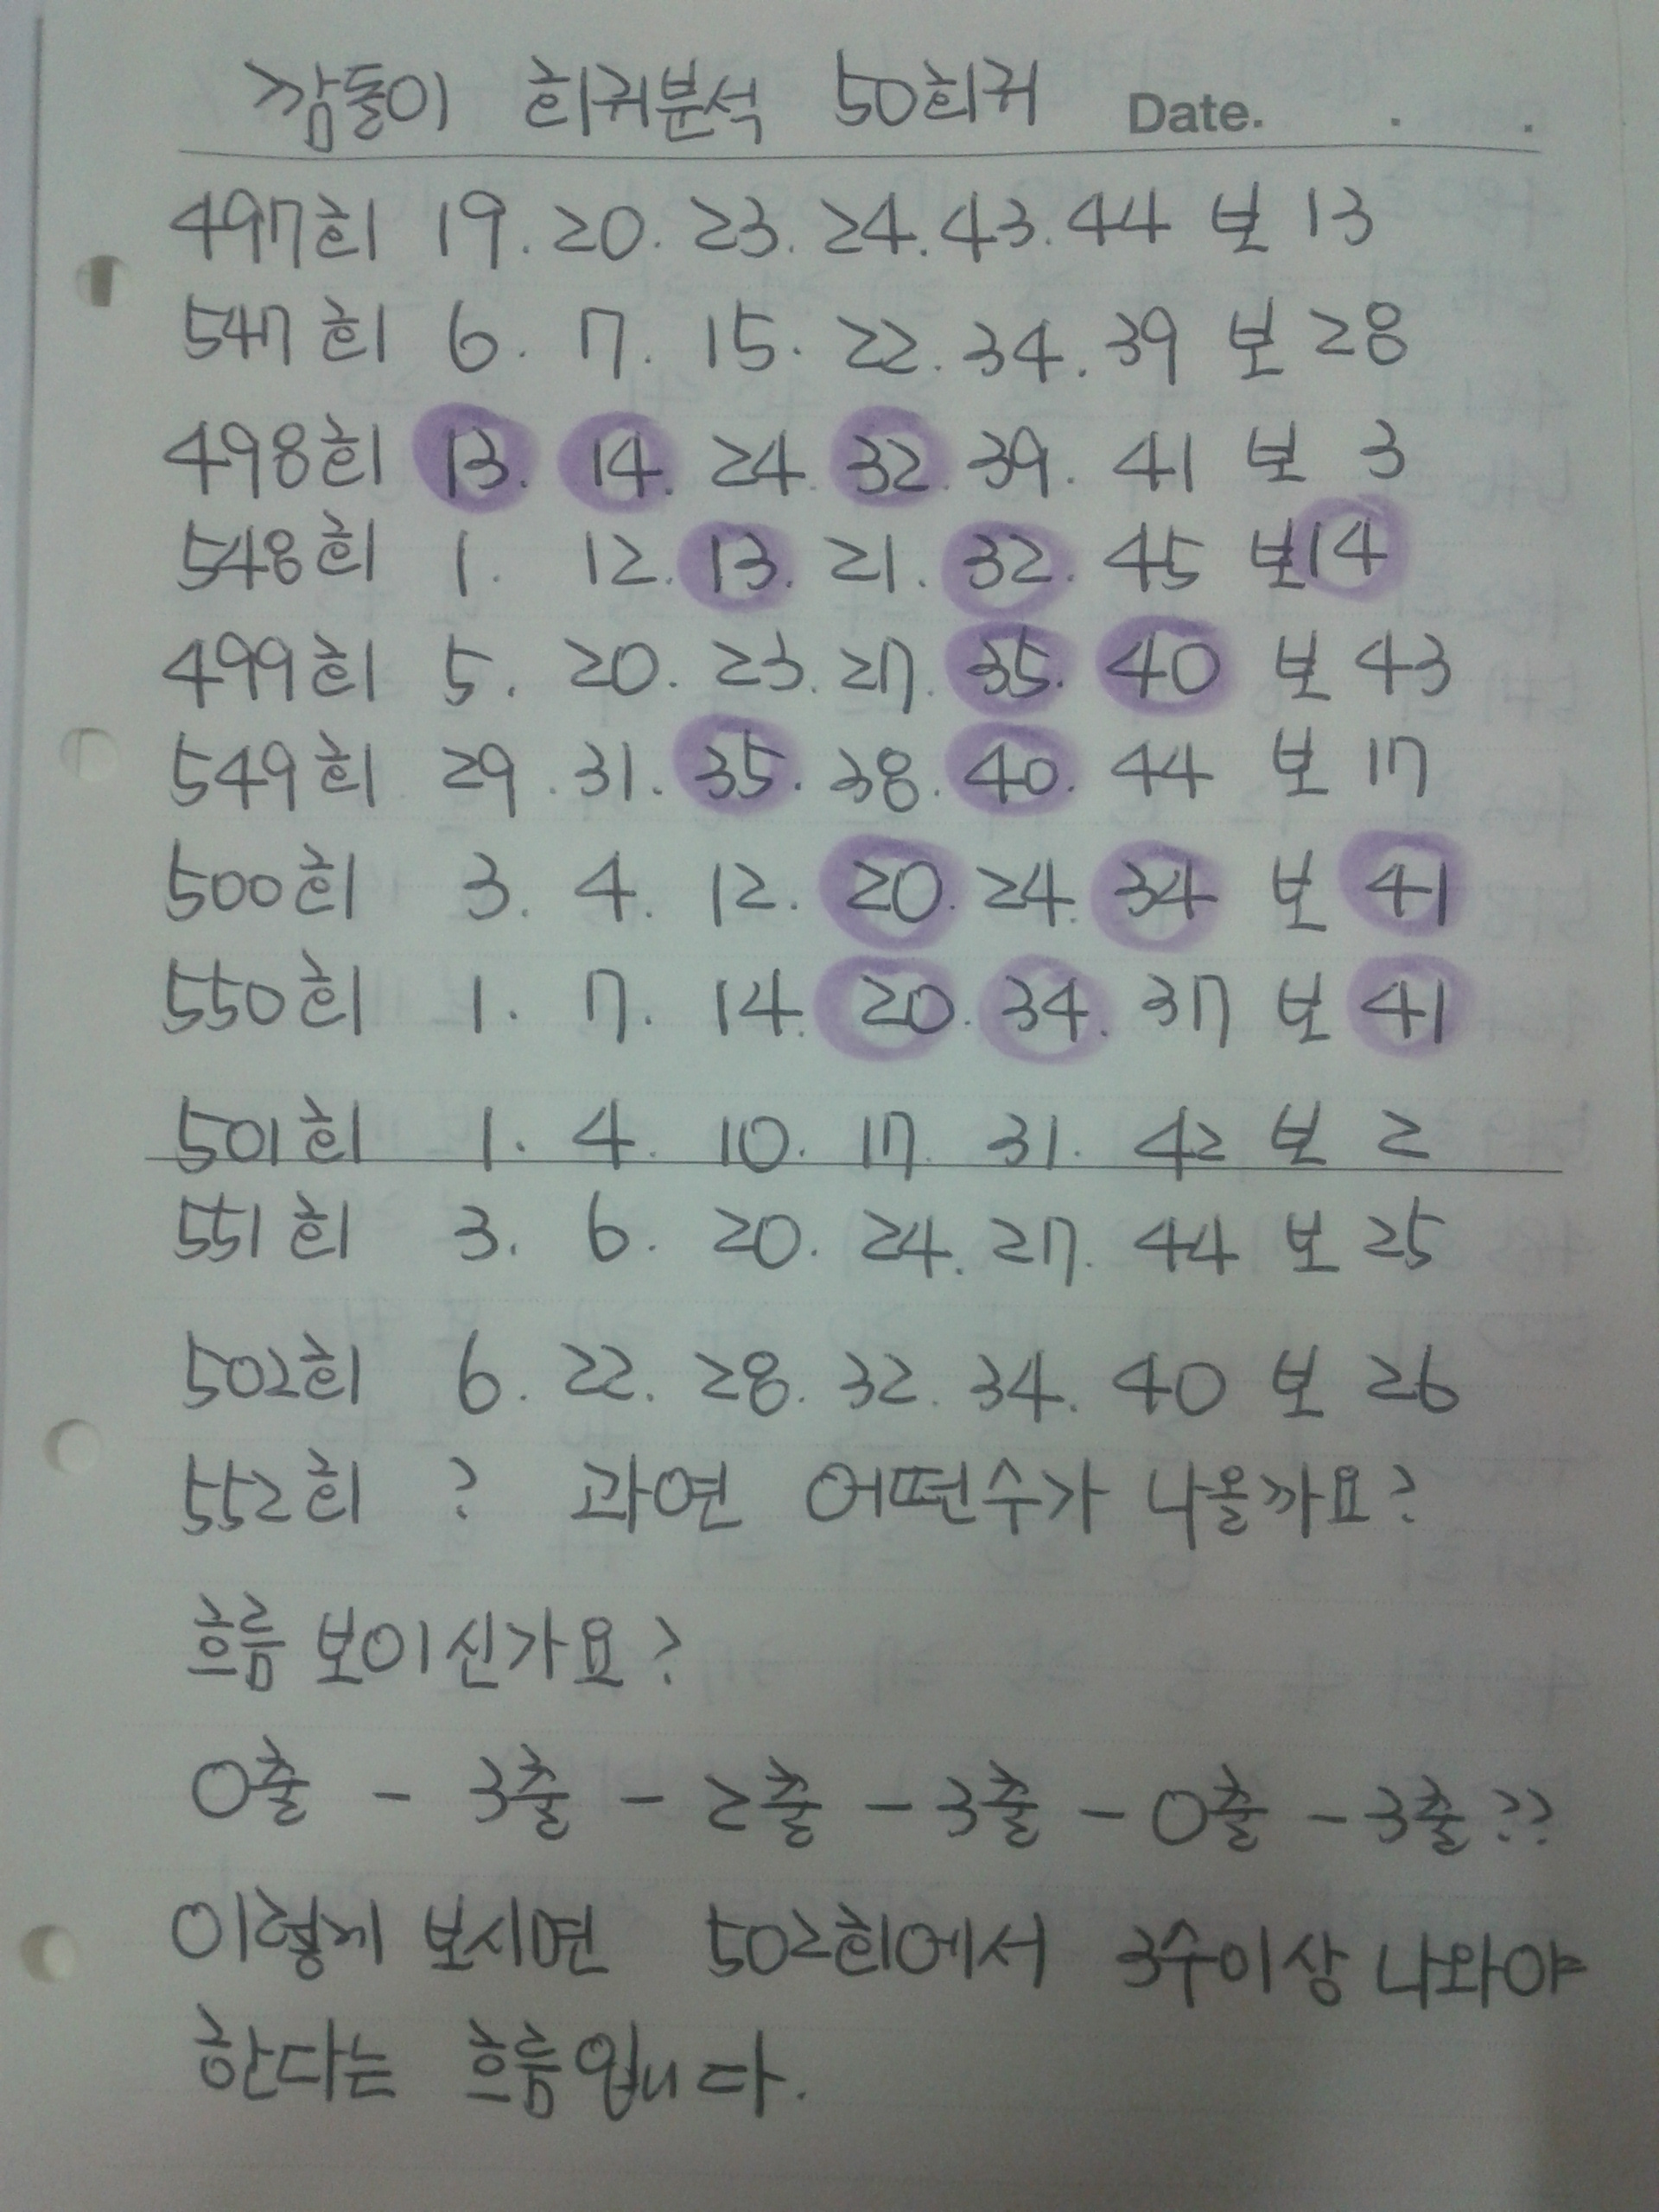 깜돌이 회귀분석 50회귀 Date. . .
497회 19. 20. 23. 24. 43. 44 보 13
547회 6. 7. 15. 22. 34. 39 보 28
498회 13. 14. 24. 32. 39. 41 보 3
548회 1. 12. 13. 21. 32. 45 보 14
499회 5. 20. 23. 27. 35. 40 보 43
549회 29. 31. 35. 38. 40. 44 보 17
500회 3. 4. 12. 20. 24. 34 보 41
550회 1. 7. 14. 20. 34. 37 보 41
501회 1. 4. 10. 17. 31. 42 보 2
551회 3. 6. 20. 24. 27. 44 보 25
502회 6. 22. 28. 32. 34. 40 보 26
552회 ? 과연 어떤수가 나올까요?
흐름 보이신가요?
0출 - 3출 - 2출 - 3출 - 0출 - 3출??
이렇게 보시면 502회에서 3수이상 나와야
한다는 흐름입니다.